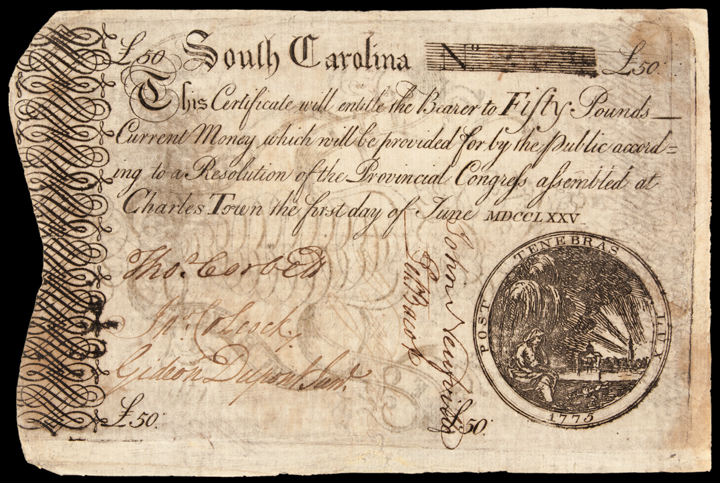 £50 South Carolina No £50:
This Certificate will entitle the Bearer to Fifty Pounds
Current Money which will be provided for by the public accord=
ing to a Resolution of the Provincial Congress assembled at
Charles Town the first day of June MDCCLXXV
Tho.s Corbett
Gideon Dupont Junr.
John
POST TENEBRAS LUX
1775
£50: £50: